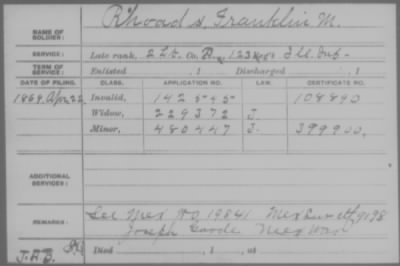 Rhoads, Franklin M.
NAME OF SOLDIER:
SERVICE: Late rank, 2 Lt. Co. D, 123 Reg't Ill. Inf.
TERM OF SERVICE: Enlisted , 1 Discharged , 1
DATE OF FILING. CLASS. APPLICATION NO. LAW. CERTIFICATE NO.
1869, Apr. 22 Invalid, 142545 108890
Widow, 229372 J.
Minor, 480447 J. 399900
ADDITIONAL SERVICES:
REMARKS: See Mex WO 19841 Mex 9198
Joseph Mex War
J.A.B. Died , 1 , at